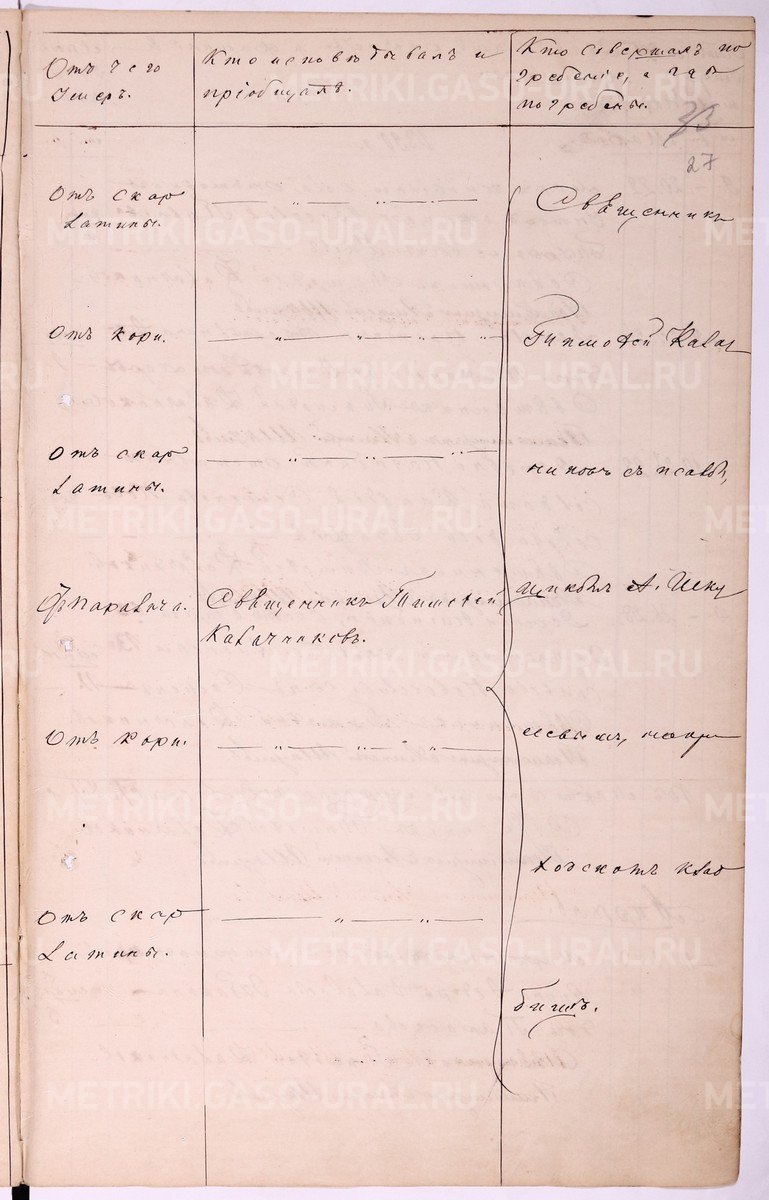 Отъ чего
умеръ.
Кто исповѣдывалъ и
пріобщалъ.
Кто совершалъ по
гребеніе, и гдѣ
погребены.
27
Отъ скар
латины.
Священникъ
Отъ кори.
Тимоѳей Калач
Отъ скар
латины.
никовъ съ псалом,
Отъ паралича.
Священникъ Тимоѳей
Калачниковъ.
щикомъ А.
Отъ кори.
на при
ходскомъ клад
Отъ скар
латины.
бищѣ.
METRIKI.GASO-URAL.RU